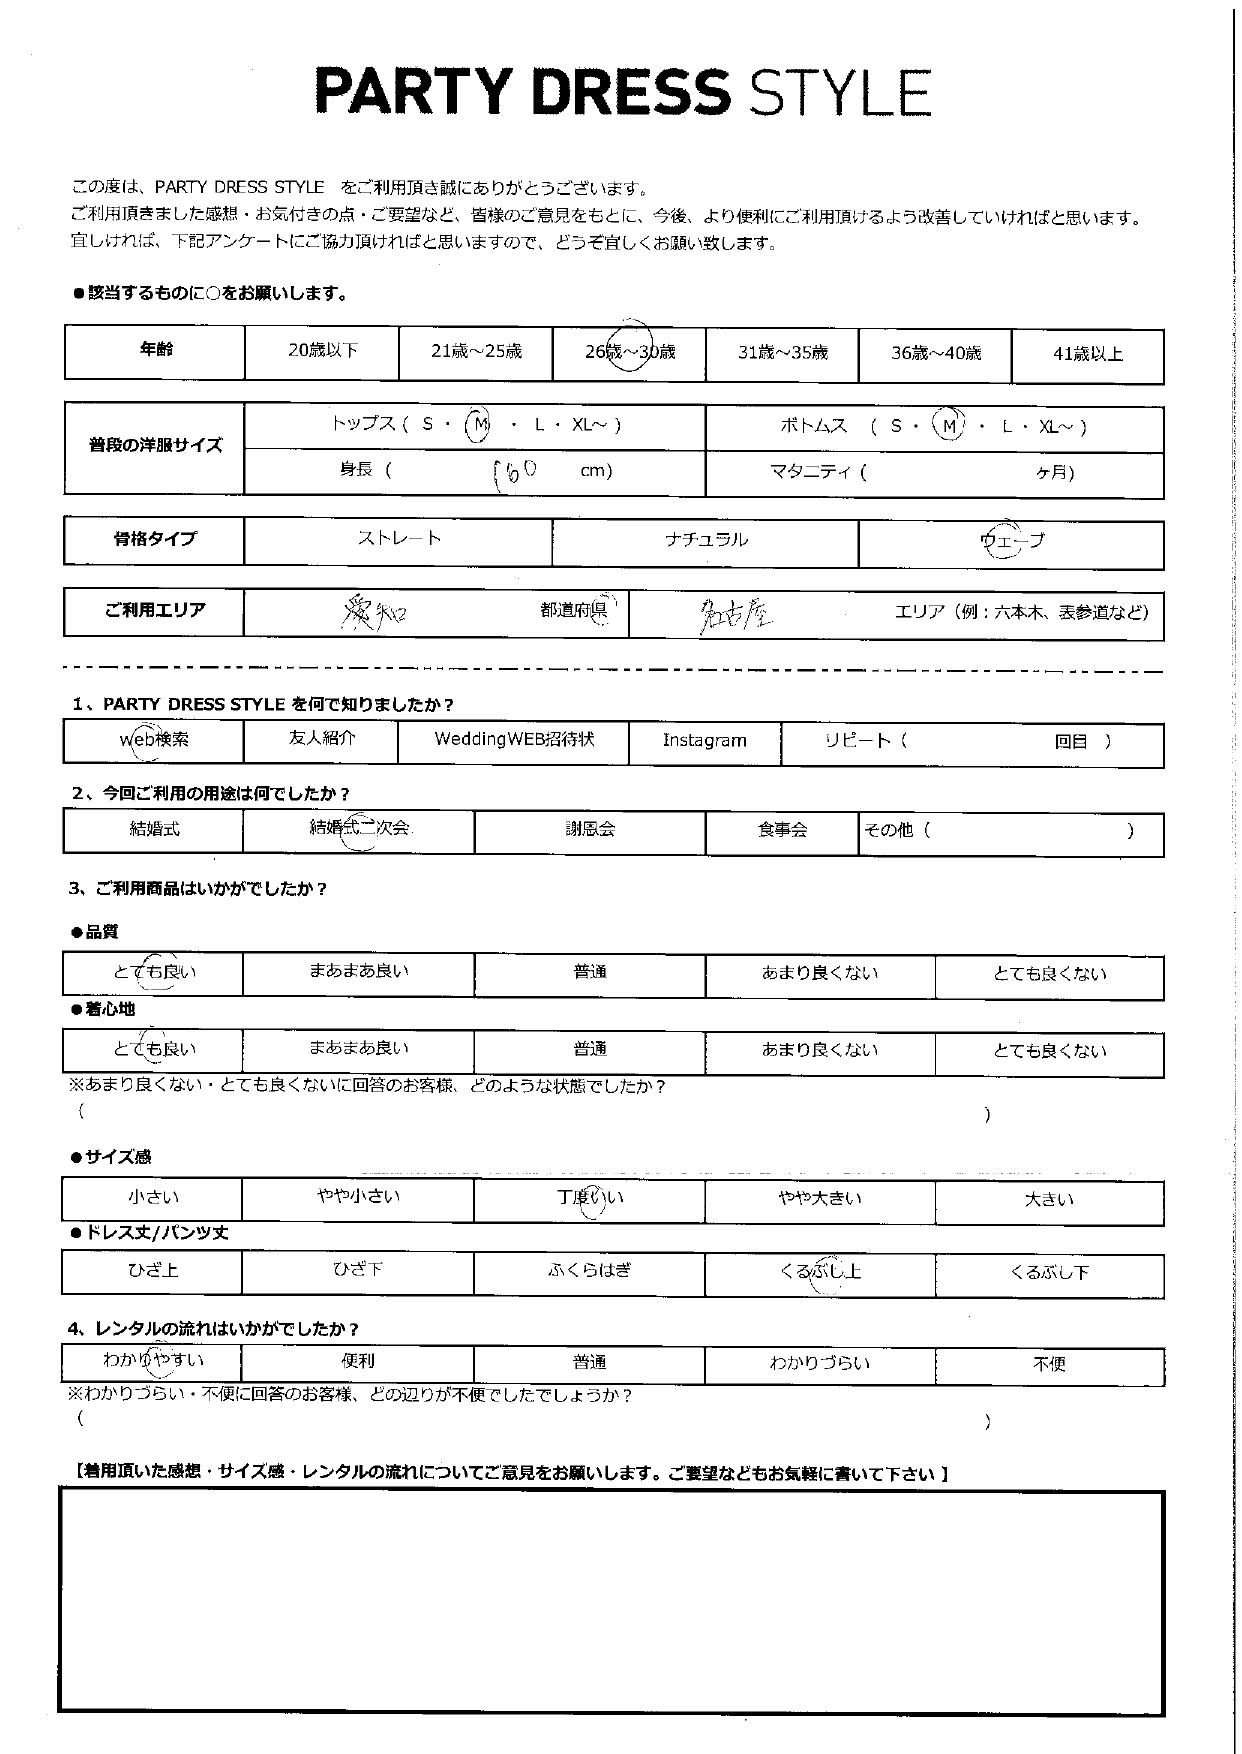 PARTY DRESS STYLE
この度は、PARTY DRESS STYLE をご利用頂き誠にありがとうございます。
ご利用頂きました感想・お気付きの点・ご要望など、皆様のご意見をもとに、今後、より便利にご利用頂けるよう改善していければと思います。
宜しければ、下記アンケートにご協力頂ければと思いますので、どうぞ宜しくお願い致します。
●該当するものに○をお願いします。
年齢 20歳以下 21歳～25歳 26歳～30歳 31歳～35歳 36歳～40歳 41歳以上
普段の洋服サイズ トップス ( S ・ M ・ L ・ XL～ ) ボトムス ( S ・ M ・ L ・ XL～ )
身長 ( 160 cm) マタニティ ( ヶ月)
骨格タイプ ストレート ナチュラル ウェーブ
ご利用エリア 愛知 都道府県 名古屋 エリア（例：六本木、表参道など）
1、PARTY DRESS STYLE を何で知りましたか？
web検索 友人紹介 WeddingWEB招待状 Instagram リピート ( 回目 )
2、今回ご利用の用途は何でしたか？
結婚式 結婚式二次会 謝恩会 食事会 その他 ( )
3、ご利用商品はいかがでしたか？
●品質
とても良い まあまあ良い 普通 あまり良くない とても良くない
●着心地
とても良い まあまあ良い 普通 あまり良くない とても良くない
※あまり良くない・とても良くないに回答のお客様、どのような状態でしたか？
( )
●サイズ感
小さい やや小さい 丁度いい やや大きい 大きい
●ドレス丈/パンツ丈
ひざ上 ひざ下 ふくらはぎ くるぶし上 くるぶし下
4、レンタルの流れはいかがでしたか？
わかりやすい 便利 普通 わかりづらい 不便
※わかりづらい・不便に回答のお客様、どの辺りが不便でしたでしょうか？
( )
【着用頂いた感想・サイズ感・レンタルの流れについてご意見をお願いします。ご要望などもお気軽に書いて下さい 】